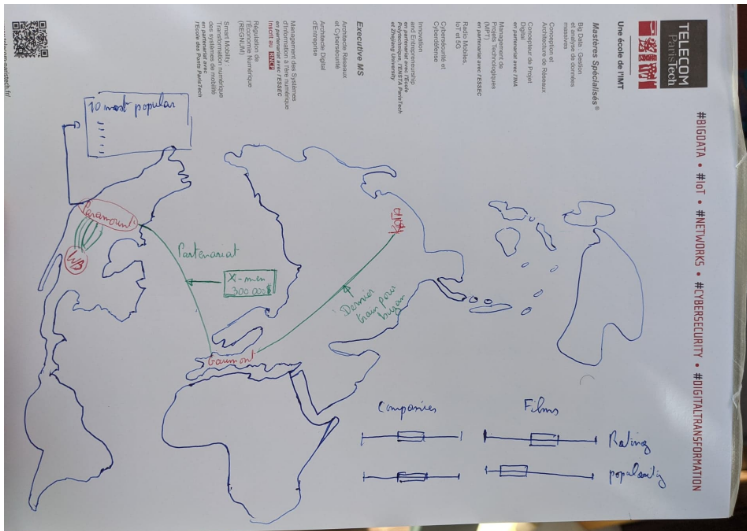 TELECOM
ParisTech
Une école de l'IMT
#BIGDATA • #IoT • #NETWORKS • #CYBERSECURITY • #DIGITALTRANSFORMATION
Mastères Spécialisés®
Big Data : Gestion
et analyse de données
massives
Conception et
Architecture de Réseaux
Concepteur de Projet
Digital
en partenariat avec l'INA
Management de
Projets Technologiques
(MPT)
en partenariat avec l'ESSEC
Radio Mobiles,
IoT et 5G
Cybersécurité et
Cyberdéfense
Innovation
and Entrepreneurship
en partenariat avec l'École
Polytechnique, l'ENSTA ParisTech
et Zhejiang University
Executive MS
Architecte Réseaux
et Cybersécurité
Architecte Digital
d'Entreprise
Management des Systèmes
d'Information à l'ère numérique
en partenariat avec l'ESSEC
Inscrit au
Régulation de
l'Économie Numérique
(REGNUM)
Smart Mobility :
Transformation numérique
des systèmes de mobilité
en partenariat avec
l'École des Ponts ParisTech
10 most popular
Paramount
WB
Partenariat
X-men
300.000$
Gaumont
Dernier
train pour
busan
Companies
Films
Rating
popularity